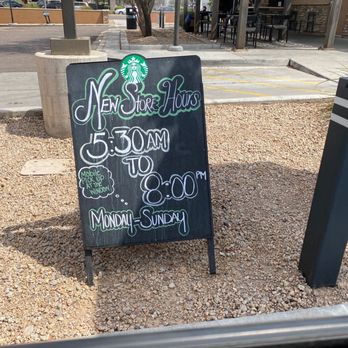 New Store Hours
5:30AM
TO
8:00PM
MOBILE
PICK UP
AT THE
WINDOW
Monday-Sunday